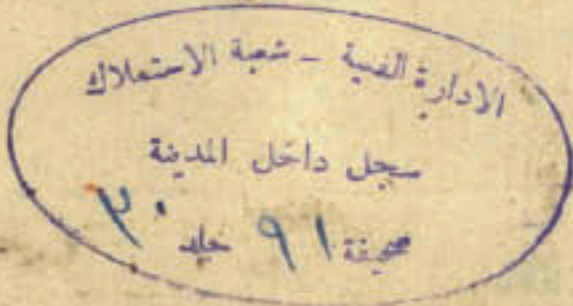 الادارة الفنية - شعبة الاستملاك
سجل داخل المدينة
صحيفة ٩١ جلد ٣٠